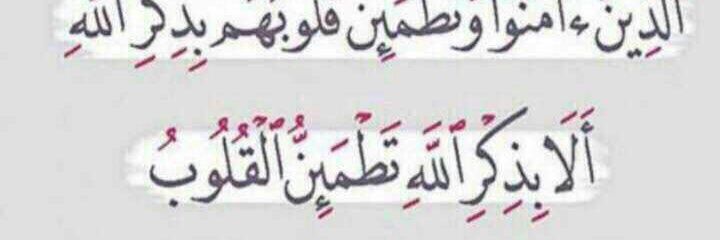 الَّذِينَ ءَامَنُوا وَتَطْمَئِنُّ قُلُوبُهُم بِذِكْرِ اللَّهِ
أَلَا بِذِكْرِ ٱللَّهِ تَطْمَئِنُّ ٱلْقُلُوبُ